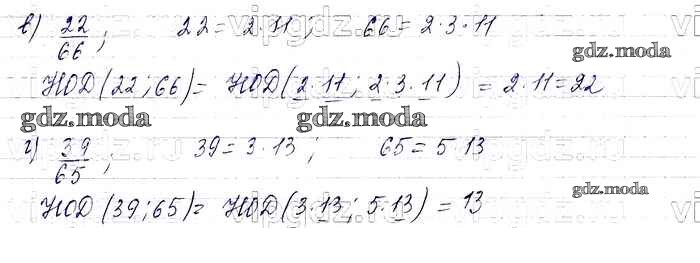 в) 22/66; 22 = 2·11; 66 = 2·3·11
gdz.moda
НОД(22;66) = НОД(2·11; 2·3·11) = 2·11=22
gdz.moda gdz.moda
г) 39/65; 39 = 3·13; 65 = 5·13
gdz.moda
НОД(39;65) = НОД(3·13; 5·13) = 13